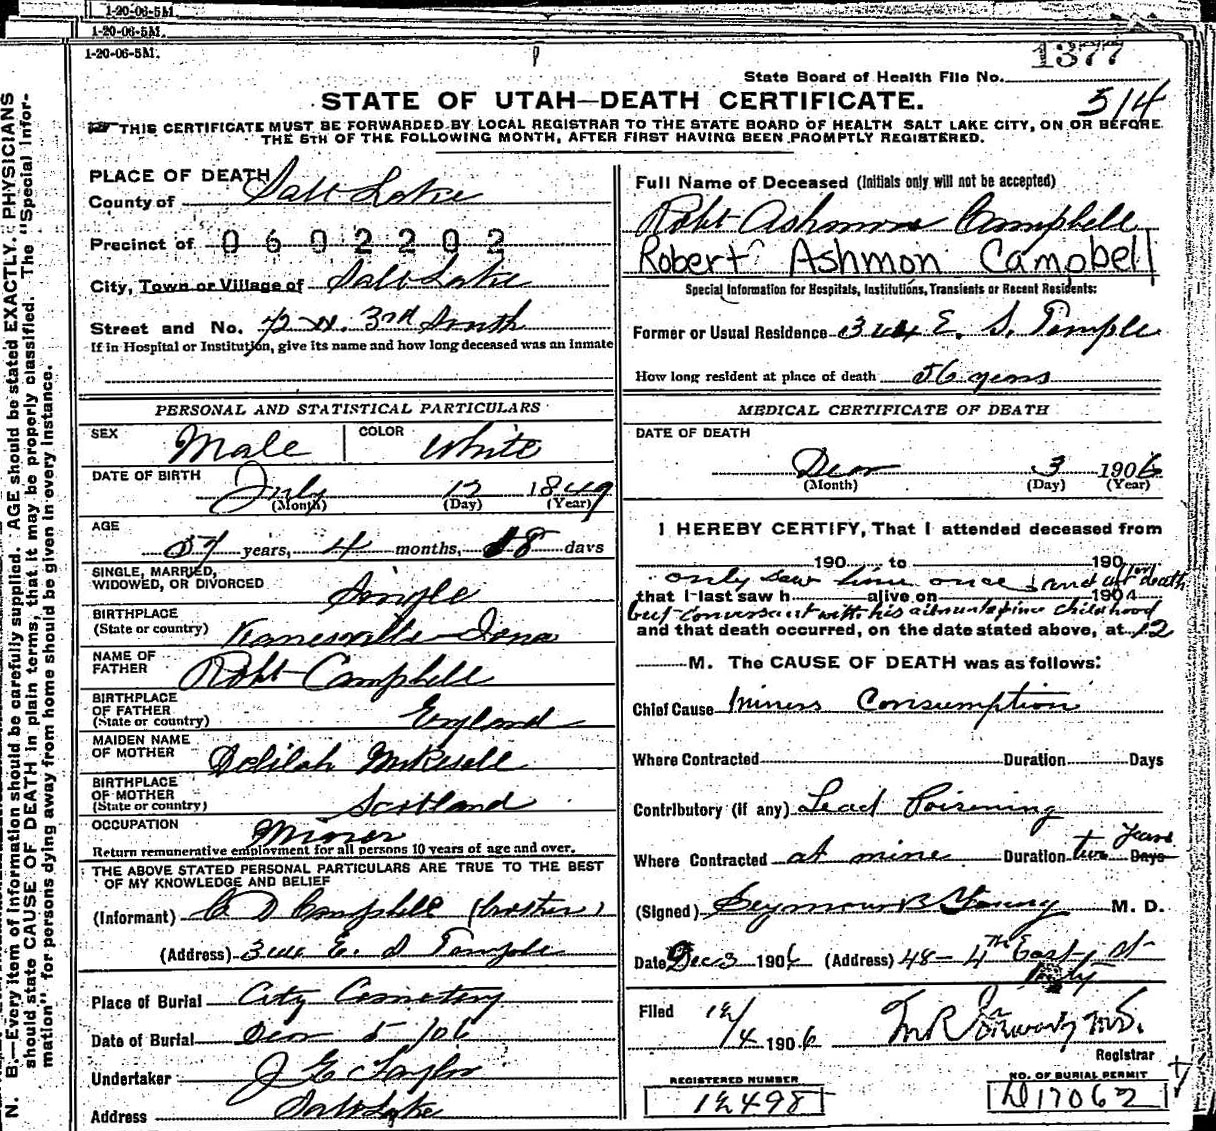 1-20-06-5M.
1-20-06-5M.
1-20-06-5M.
1377
State Board of Health File No.
514
STATE OF UTAH—DEATH CERTIFICATE.
THIS CERTIFICATE MUST BE FORWARDED BY LOCAL REGISTRAR TO THE STATE BOARD OF HEALTH SALT LAKE CITY, ON OR BEFORE
THE 5TH OF THE FOLLOWING MONTH, AFTER FIRST HAVING BEEN PROMPTLY REGISTERED.
N. B.—Every item of information should be carefully supplied. AGE should be stated EXACTLY. PHYSICIANS
should state CAUSE OF DEATH in plain terms, that it may be properly classified. The "Special Infor-
mation" for persons dying away from home should be given in every instance.
PLACE OF DEATH
County of Salt Lake
Precinct of 0602202
City, Town or Village of Salt Lake
Street and No. 72 W. 3rd South
If in Hospital or Institution, give its name and how long deceased was an inmate
Full Name of Deceased (Initials only will not be accepted)
Robt Ashmon Campbell
Robert Ashmon Campbell
Special Information for Hospitals, Institutions, Transients or Recent Residents:
Former or Usual Residence 344 E. S. Temple
How long resident at place of death 56 years
PERSONAL AND STATISTICAL PARTICULARS
SEX Male COLOR White
DATE OF BIRTH
July 12 1849
(Month) (Day) (Year)
AGE
57 years, 4 months, 18 days
SINGLE, MARRIED,
WIDOWED, OR DIVORCED Single
BIRTHPLACE
(State or country) Kanesville Iowa
NAME OF
FATHER Robt Campbell
BIRTHPLACE
OF FATHER
(State or country) England
MAIDEN NAME
OF MOTHER Delilah
BIRTHPLACE
OF MOTHER
(State or country) Scotland
OCCUPATION Miner
Return remunerative employment for all persons 10 years of age and over.
THE ABOVE STATED PERSONAL PARTICULARS ARE TRUE TO THE BEST
OF MY KNOWLEDGE AND BELIEF
(Informant) C D Campbell (brother)
(Address) 344 E. S Temple
Place of Burial City Cemetery
Date of Burial Dec 5/06
Undertaker J E Taylor
Address Salt Lake
MEDICAL CERTIFICATE OF DEATH
DATE OF DEATH
Dec 3 1906
(Month) (Day) (Year)
I HEREBY CERTIFY, That I attended deceased from
190 to 190
only saw him once and after death
that I last saw h alive on 190
but conversant with his ailments since childhood
and that death occurred, on the date stated above, at 12
M. The CAUSE OF DEATH was as follows:
Chief Cause Miners Consumption
Where Contracted Duration Days
Contributory (if any) Lead Poisoning
Years
Where Contracted at mine Duration two Days
(Signed) Seymour B Young M. D.
Date Dec 3 1906 (Address) 48 - 4th East St
City
Filed 12/4 1906
Registrar
REGISTERED NUMBER
12498
NO. OF BURIAL PERMIT
D17062